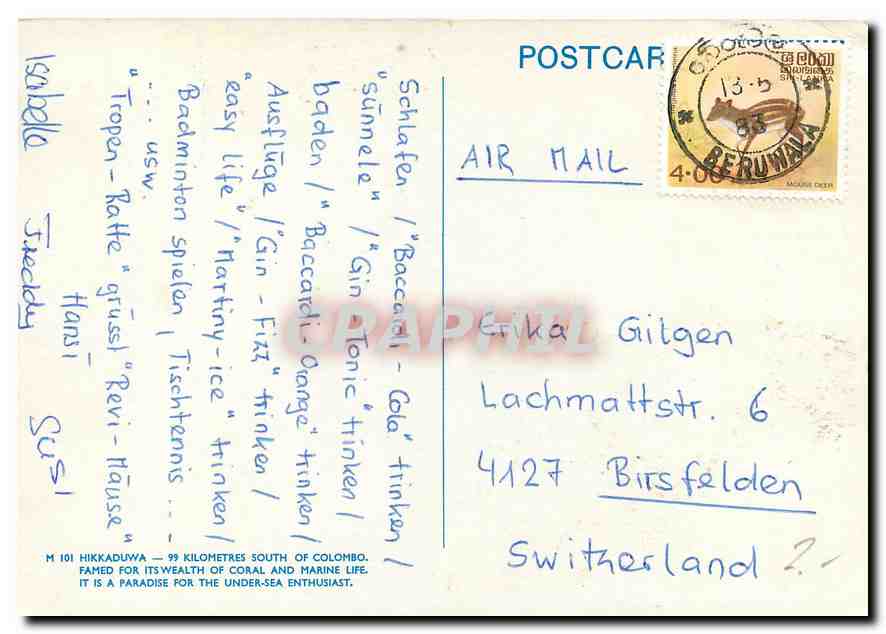 POSTCAR
ශ්‍රී ලංකා
இலங்கை
SRI LANKA
13·5
83
BERUWALA
4·00
MOUSE DEER
AIR MAIL
Schlafen / "Baccardi - Cola" trinken /
"sünnele" / "Gin - Tonic" trinken /
baden / "Baccardi - Orange" trinken /
Ausflüge / "Gin - Fizz" trinken /
"easy life" / "Martiny - ice" trinken /
Badminton spielen, Tischtennis ... -
... usw.
"Tropen - Ratte" grüsst "Revi - Mäuse"
Hansi
Isabelle Freddy Susi
Erika Gilgen
Lachmattstr. 6
4127 Birsfelden
Switherland
2.-
CPAPHIL
M 101 HIKKADUWA — 99 KILOMETRES SOUTH OF COLOMBO.
FAMED FOR ITS WEALTH OF CORAL AND MARINE LIFE.
IT IS A PARADISE FOR THE UNDER-SEA ENTHUSIAST.